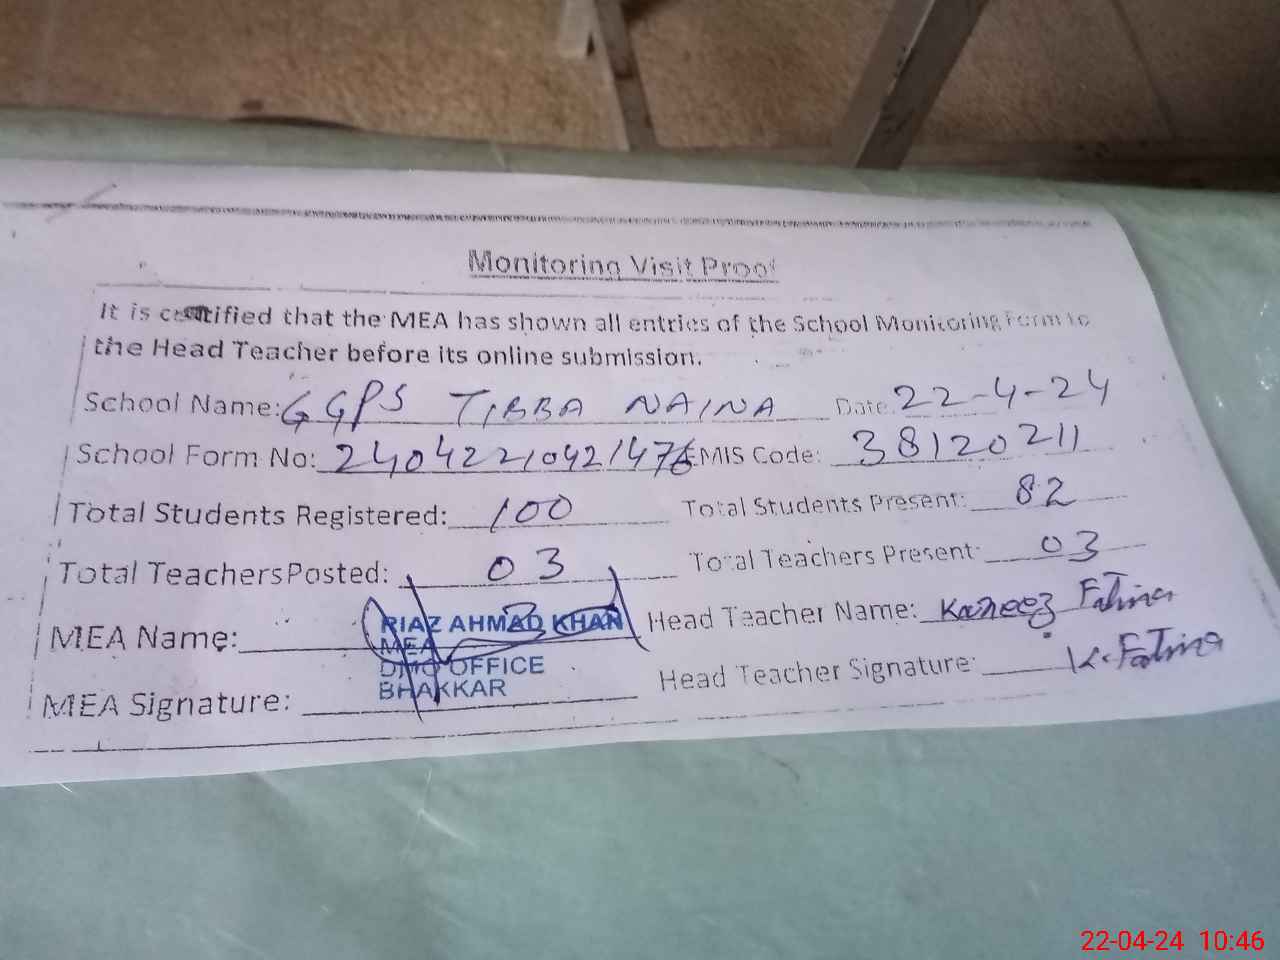 Monitoring Visit Proof
It is certified that the MEA has shown all entries of the School Monitoring Form to
the Head Teacher before its online submission.
School Name: GGPS TIBBA NAINA Date: 22-4-24
School Form No: 2404221042147 EMIS Code: 38120211
Total Students Registered: 100 Total Students Present: 82
Total Teachers Posted: 03 Total Teachers Present: 03
MEA Name: RIAZ AHMAD KHAN Head Teacher Name: Kaneez Fatima
MEA
DMO OFFICE
BHAKKAR
MEA Signature: Head Teacher Signature: K.Fatima
22-04-24 10:46